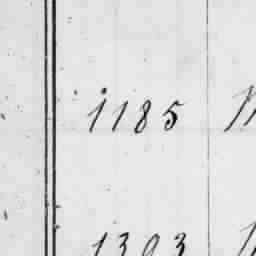 1185
1303